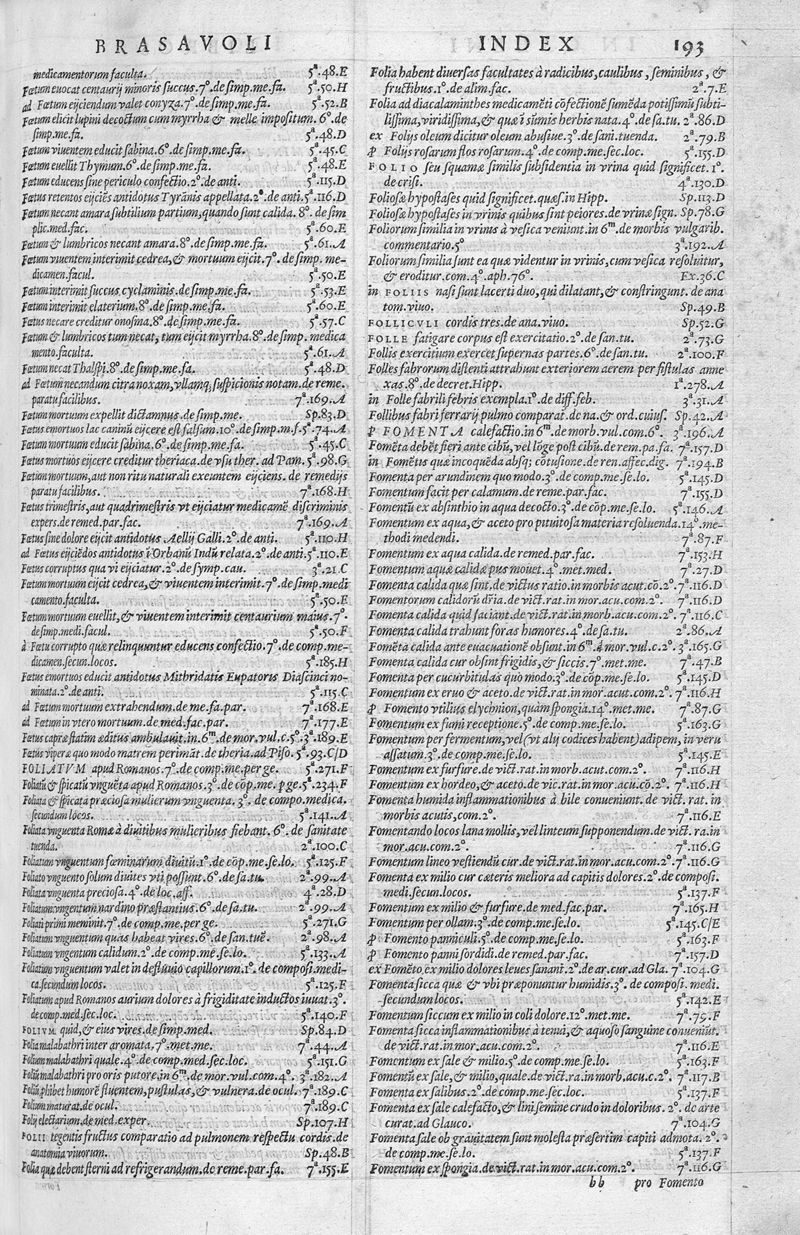 BRASAVOLI
medicamentorum faculta. 5ª.48.E
Fœtum euocat centaurij minoris succus.7º.de simp.me.fa. 5ª.50.H
ad Fœtum eijciendum valet conyza.7º.de simp.me.fa. 5ª.52.B
Fœtum elicit lupini decoctum cum myrrha & melle impositum. 6º.de
simp.me.fa. 5ª.48.D
Fœtum viuentem educit sabina.6º.de simp.me.fa. 5ª.45.C
Fœtum euellit Thymum.6º.de simp.me.fa. 5ª.48.E
Fœtum educens sine periculo confectio.2º.de anti. 5ª.115.D
Fœtus retentos eijciẽs antidotus Tyrãnis appellata.2º.de anti.5ª.116.D
Fœtum necant amara subtilium partium,quando sunt calida. 8º. de sim
plic.med.fac. 5ª.60.E
Fœtum & lumbricos necant amara. 8º.de simp.me.fa. 5ª.61.A
Fœtum viuentem interimit cedrea,& mortuum eijcit.7º. de simp. me-
dicamen.facul. 5ª.50.E
Fœtum interimit succus cyclaminis.de simp.me.fa. 5ª.53.E
Fœtum interimit elaterium.8º.de simp.me.fa. 5ª.60.E
Fœtus necare creditur onosma.8º.de simp.me.fa. 5ª.57.C
Fœtum & lumbricos tum necat, tum eijcit myrrha.8º.de simp. medica
mento.faculta. 5ª.61.A
Fœtum necat Thalspi.8º.de simp.me.fa. 5ª.48.D
ad Fœtum necandum citra noxam,vllamq; suspicionis notam.de reme.
paratu facilibus. 7ª.169.A
Fœtum mortuum expellit dictamnus.de simp.me. Sp.83.D
Fœtus emortuos lac caninũ eijcere est falsum.10º.de simp.m.f.5ª.74.A
Fœtum mortuum educit sabina.6º.de simp.me.fa. 5ª.45.C
Fœtus mortuos eijcere creditur theriaca.de vsu ther. ad Pam. 5ª.98.G
Fœtum mortuum,aut non ritu naturali exeuntem eijciens.de remedijs
paratu facilibus. 7ª.168.H
Fœtus trimestris,aut quadrimestris vt eijciatur medicamẽ discriminis
expers.de remed.par.fac. 7ª.169.A
Fœtus sine dolore eijcit antidotus Aelij Galli.2º.de anti. 5ª.110.H
ad Fœtus eijciẽdos antidotus ĩ Orbanũ Indũ relata.2º.de anti.5ª.110.E
Fœtus corruptus qua vi eijciatur.2º.de symp.cau. 3ª.21.C
Fœtum mortuum eijcit cedrea,& viuentem interimit.7º.de simp.medi
camento.faculta. 5ª.50.E
Fœtum mortuum euellit,& viuentem interimit centaurium maius.7º.
de simp.medi.facul. 5ª.50.F
à Fœtu corrupto quæ relinquuntur educens confectio.7º.de comp.me-
dicamen.secun.locos. 5ª.185.H
Fœtus emortuos educit antidotus Mithridatis Eupatoris Diascinci no-
minata.2º.de anti. 5ª.115.C
ad Fœtum mortuum extrahendum.de me.fa.par. 7ª.168.E
ad Fœtum in vtero mortuum.de med.fac.par. 7ª.177.E
Fœtus capræ statim æditus ambulauit.in.6ᵐ.de mor.vul.c.5º.3ª.189.E
Fœtus viperæ quo modo matrem perimãt.de theria.ad Piso. 5ª.93.C/D
FOLIATVM apud Romanos.7º.de comp.me.per ge. 5ª.271.F
Foliatũ & spicatũ vnguẽta apud Romanos.3º.de cõp.me.p ge.5ª.234.F
Foliata & spicata præciosa mulierum vnguenta. 3º. de compo.medica.
secundum locos. 5ª.141.A
Foliata vnguenta Romæ à diuitibus mulieribus fiebant. 6º. de sanitate
tuenda. 2ª.100.C
Foliatum vnguentum fœminarum diuitũ.1º.de cõp.me.se.lo. 5ª.125.F
Foliato vnguento solum diuites vti possunt.6º.de sa.tu. 2ª.99.A
Foliata vnguenta preciosa.4º.de loc.aff. 4ª.28.D
Foliatum vnguentum nardino præstantius.6º.de sa.tu. 2ª.99.A
Foliati primi meminit.7º.de comp.me.per ge. 5ª.271.G
Foliatum vnguentum quas habeat vires.6º.de san.tuẽ. 2ª.98.A
Foliatum vngentum calidum.2º.de comp.me.se.lo. 5ª.133.A
Foliatum vnguentum valet in defluuio capillorum.1º.de composi.medi-
ca.secundum locos. 5ª.125.F
Foliatum apud Romanos aurium dolores à frigiditate inductos iuuat.3º.
de comp.med.sec.loc. 5ª.140.F
FOLIVM quid,& eius vires.de simp.med. Sp.84.D
Folia malabathri inter aromata.7º.met.me. 7ª.44.A
Folium malabathri quale.4º.de comp.med.sec.loc. 5ª.151.G
Foliũ malabathri pro oris putore.in 6ᵐ.de mor.vul.com.4º. 3ª.182.A
Foliũ phibet humorẽ fluentem,pustulas,& vulnera.de ocul. 7ª.189.C
Folium maturat.de ocul. 7ª.189.C
Folij electarium.de med.exper. Sp.107.H
FOLII tegentis fructus comparatio ad pulmonem respectu cordis.de
anatomia viuorum. Sp.48.B
Folia quæ debent sterni ad refrigerandum.de reme.par.fa. 7ª.155.E
INDEX 193
Folia habent diuersas facultates à radicibus,caulibus, seminibus, &
fructibus.1º.de alim.fac. 2ª.7.E
Folia ad diacalaminthes medicamẽti cõfectionẽ sumẽda potissimũ subti-
lissima,viridissima,& quæ ĩ sũmis herbis nata.4º.de sa.tu. 2ª.86.D
ex Folijs oleum dicitur oleum abusiue.3º.de sani.tuenda. 2ª.79.B
p Folijs rosarum flos rosarum.4º.de comp.me.sec.loc. 5ª.155.D
FOLIO seu squamæ similis subsidentia in vrina quid significet. 1º.
de crisi. 4ª.130.D
Foliosæ hypostases quid significet.quæs.in Hipp. Sp.113.D
Foliosæ hypostases in vrinis quibus sint peiores.de vrinæ sign. Sp.78.G
Foliorum similia in vrinis à vesica veniunt.in 6ᵐ.de morbis vulgarib.
commentario.5º 3ª.192.A
Foliorum similia sunt ea quæ videntur in vrinis,cum vesica resoluitur,
& eroditur.com.4º.aph.76º. Ex.36.C
in FOLIIS nasi sunt lacerti duo,qui dilatant,& constringunt.de ana
tom.viuo. Sp.49.B
FOLLICVLI cordis tres.de ana.viuo. Sp.52.G
FOLLE fatigare corpus est exercitatio.2º.de san.tu. 2ª.73.G
Follis exercitium exercet supernas partes.6º.de san.tu. 2ª.100.F
Folles fabrorum distenti attrahunt exteriorem aerem per fistulas anne
xas.8º.de decret.Hipp. 1ª.278.A
in Folle fabrili febris exempla.1º.de diff.feb. 3ª.31.A
Follibus fabri ferrarij pulmo comparat.de na.& ord.cuiuſ. Sp.42.A
p FOMENTA calefactio.in 6ᵐ.de morb.vul.com.6º. 3ª.196.A
Fomẽta debẽt fieri ante cibũ,vel lõge post cibũ.de rem.pa.fa. 7ª.157.D
in Fomẽtis quæ incoquẽda absq; cõtusione.de ren.affec.dig. 7ª.194.B
Fomenta per arundinem quo modo.3º.de comp.me.se.lo. 5ª.145.D
Fomentum facit per calamum.de reme.par.fac. 7ª.155.D
Fomentũ ex absinthio in aqua decocto.3º.de cõp.me.se.lo. 5ª.146.A
Fomentum ex aqua,& aceto pro pituitosa materia resoluenda.14º.me-
thodi medendi. 7ª.87.F
Fomentum ex aqua calida.de remed.par.fac. 7ª.153.H
Fomentum aquæ calidæ pus mouet.4º.met.med. 7ª.27.D
Fomenta calida quæ sint.de victus ratio.in morbis acut.cõ.2º.7ª.116.D
Fomentorum calidorũ dr̃ia.de vict.rat.in mor.acu.com.2º. 7ª.116.D
Fomenta calida quid faciant.de vict.rat.in mor.acu.com.2º. 7ª.116.C
Fomenta calida trahunt foras humores.4º.de sa.tu. 2ª.86.A
Fomẽta calida ante euacuationẽ obsunt.in 6ᵐ.d mor.vul.c.2º. 3ª.165.G
Fomenta calida cur obsint frigidis,& siccis.7º.met.me. 7ª.47.B
Fomenta per cucurbitulas quo modo.3º.de cõp.me.se.lo. 5ª.145.D
Fomentum ex eruo & aceto.de vict.rat.in mor.acut.com.2º. 7ª.116.H
p Fomento vtilius elychnion,quàm spongia.14º.met.me. 7ª.87.G
Fomentum ex fumi receptione.5º.de comp.me.se.lo. 5ª.163.G
Fomentum per fermentum,vel(vt alij codices habent)adipem,in veru
assatum.3º.de comp.me.se.lo. 5ª.145.E
Fomentum ex furfure.de vict.rat.in morb.acut.com.2º. 7ª.116.H
Fomentum ex hordeo,& aceto.de vic.rat.in mor.acu.cõ.2º. 7ª.116.H
Fomenta humida inflammationibus à bile conueniunt.de vict. rat. in
morbis acutis,com.2º. 7ª.116.E
Fomentando locos lana mollis,vel linteum supponendum.de vict. ra.in
mor.acu.com.2º. 7ª.116.G
Fomentum lineo vestiendũ cur.de vict.rat.in mor.acu.com.2º. 7ª.116.G
Fomenta ex milio cur cæteris meliora ad capitis dolores.2º.de composi.
medi.secun.locos. 5ª.137.F
Fomentum ex milio & furfure.de med.fac.par. 7ª.165.H
Fomentum per ollam.3º.de comp.me.se.lo. 5ª.145.C/E
p Fomento panniculi.5º.de comp.me.se.lo. 5ª.163.F
p Fomento panni sordidi.de remed.par.fac. 7ª.157.D
ex Fomẽto,ex milio dolores leues sanant.2º.de ar.cur.ad Gla. 7ª.104.G
Fomenta sicca quæ & vbi præponuntur humidis.3º. de composi. medi.
secundum locos. 5ª.142.E
Fomentum siccum ex milio in coli dolore.12º.met.me. 7ª.79.F
Fomenta sicca inflammationibus à tenui,& aquoso sanguine conueniũt.
de vict.rat.in mor.acu.com.2º. 7ª.116.E
Fomentum ex sale & milio.5º.de comp.me.se.lo. 5ª.163.F
Fomentũ ex sale,& milio,quale.de vict.ra.in morb.acu.c.2º. 7ª.117.B
Fomenta ex salibus.2º.de comp.me.sec.loc. 5ª.137.F
Fomenta ex sale calefacto,& lini semine crudo in doloribus. 2º. de arte
curat.ad Glauco. 7ª.104.G
Fomenta sale ob grauitatem sunt molesta præsertim capiti admota. 2º.
de comp.me.se.lo. 5ª.137.F
Fomentum ex spongia.de vict.rat.in mor.acu.com.2º. 7ª.116.G
bb pro Fomento